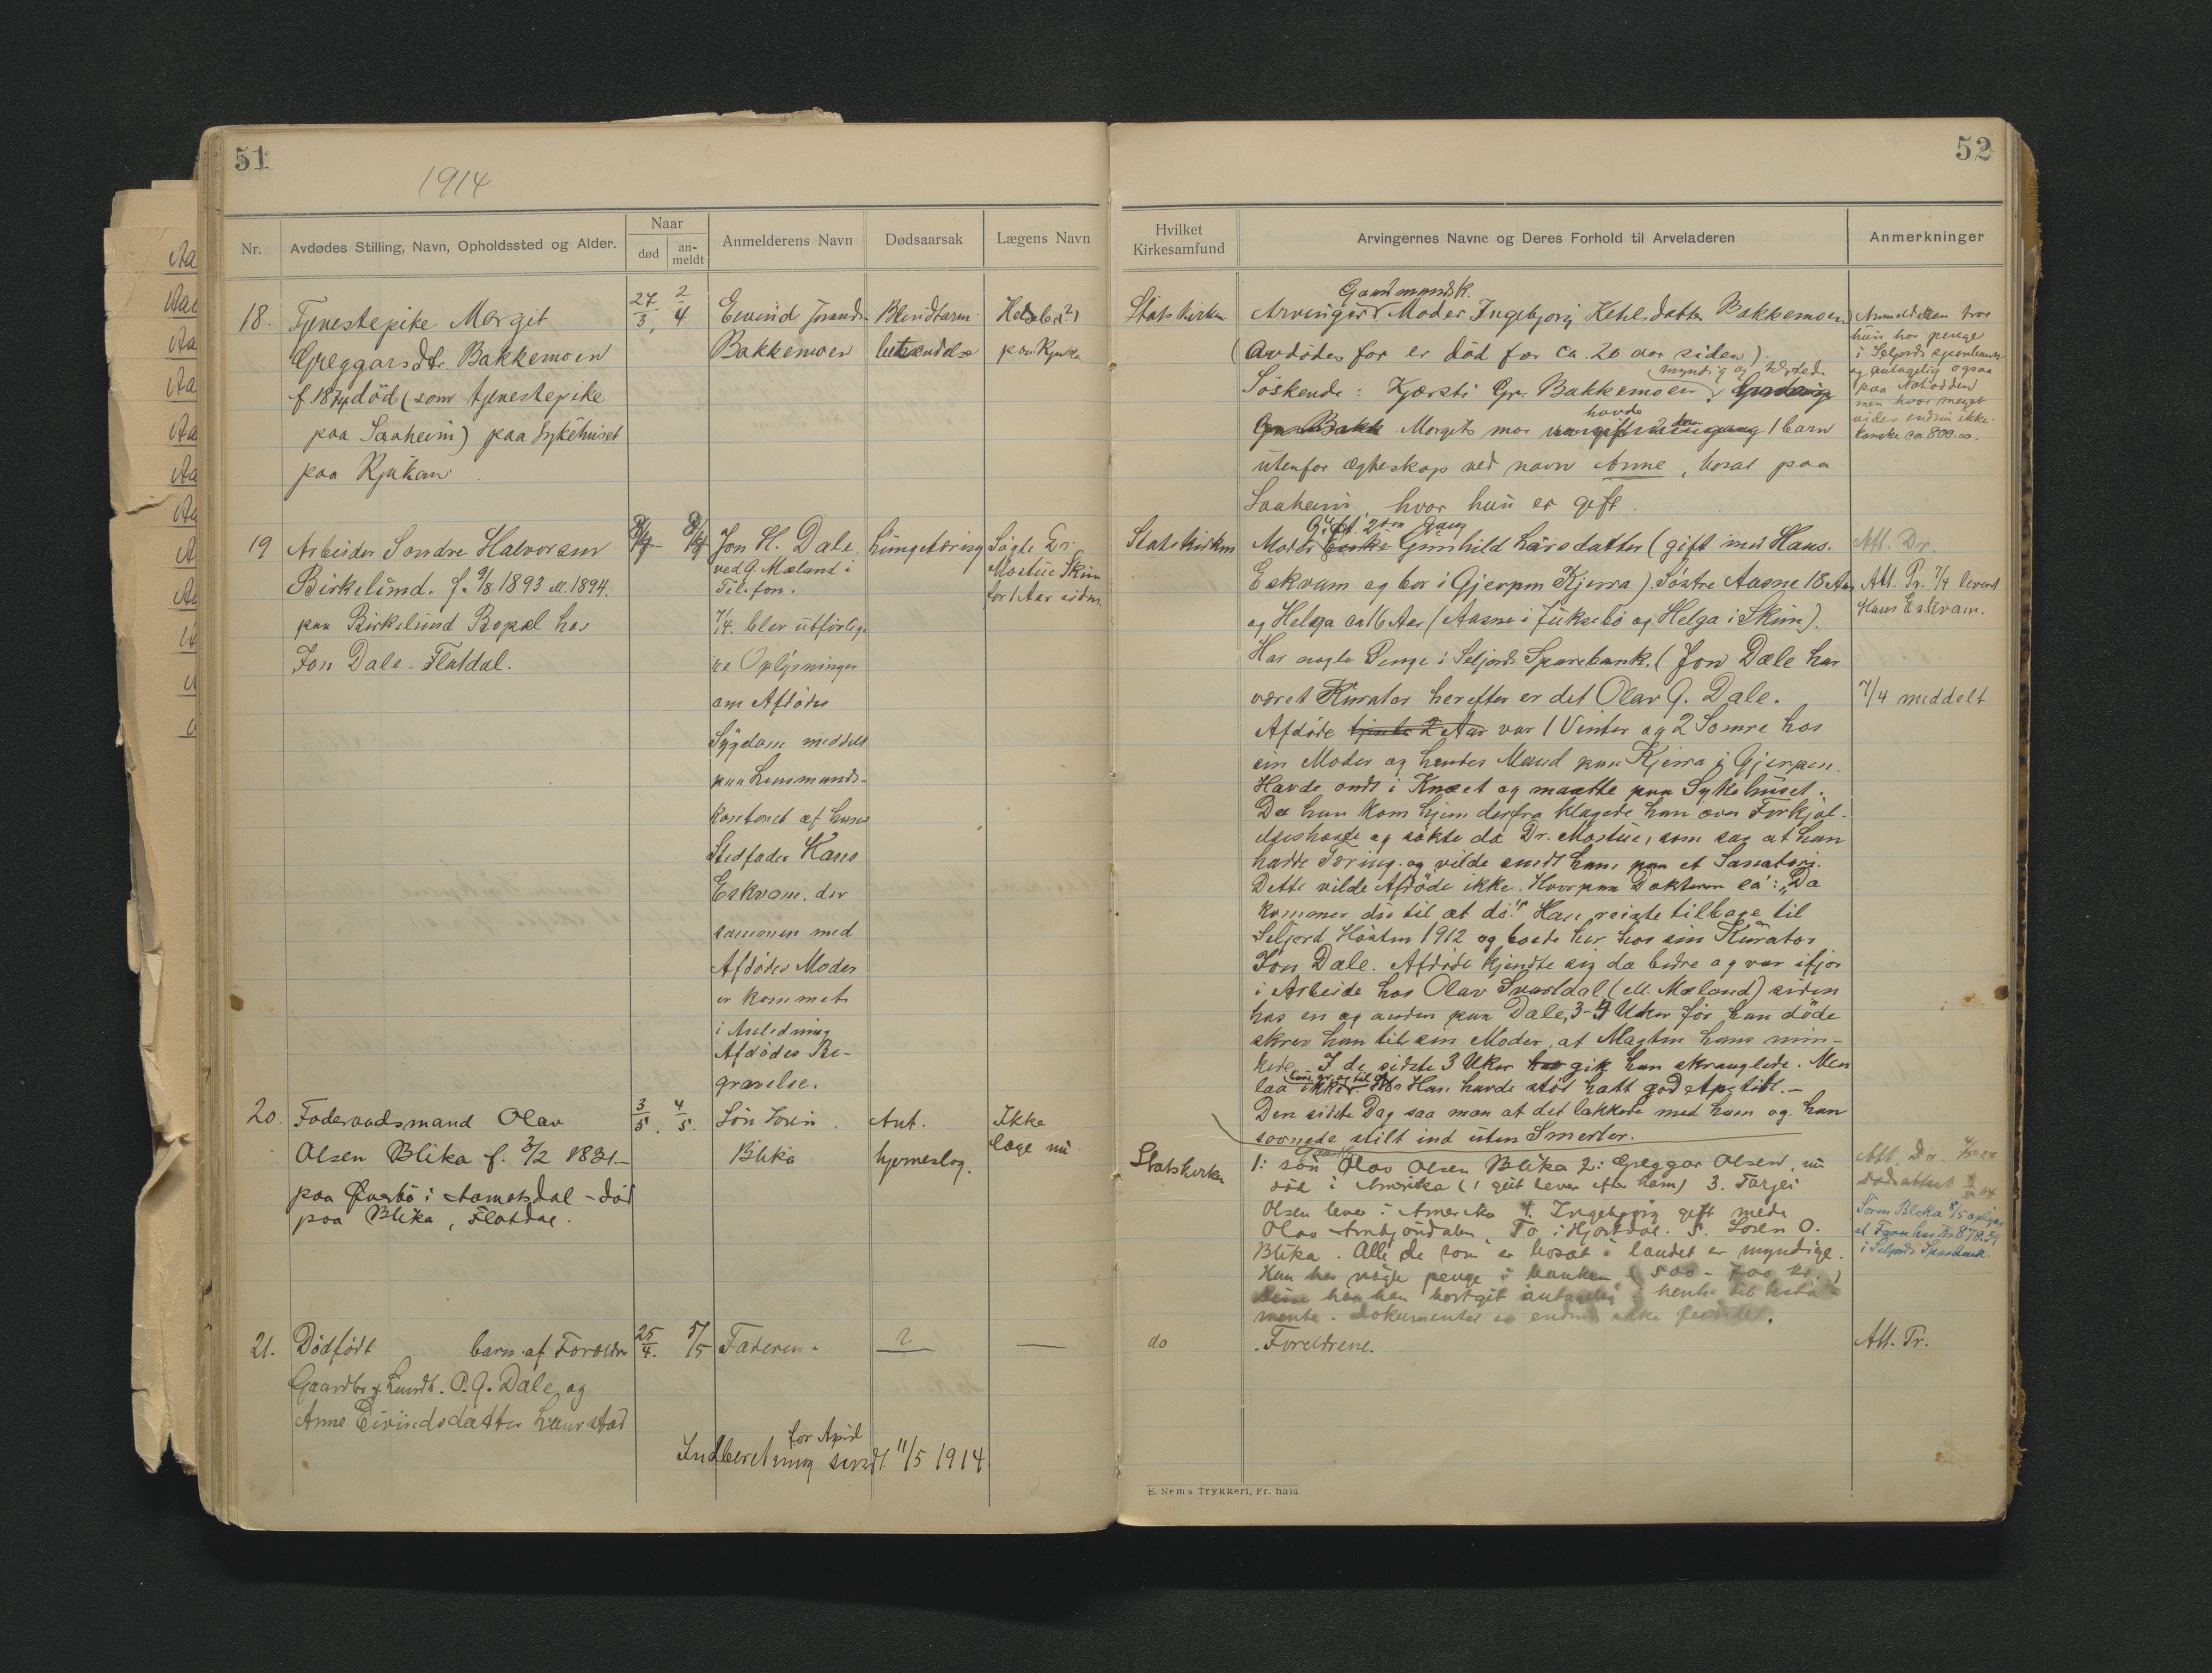 51
1914
Nr.
Avdødes Stilling, Navn, Opholdssted og Alder.
Naar
død
an-
meldt
Anmelderens Navn
Dødsaarsak
Lægens Navn
18.
Tjenestepike Margit
Greggarsdtr. Bakkemoen
død (som tjenestepike
paa Saaheim) paa Sykehuset
paa Rjukan
27/3
2/4
Eivind
Bakkemoen
Blindtarm
betændelse
paa Rjukan
19
Arbeider Sondre Halvorsen
Birkelund. f. 9/8 1893 ell. 1894.
paa Birkelund Bopæl hos
Jon Dale - Flatdal.
Jon H. Dale.
ved G Mæland i
Telefon.
7/4. blev utførlige
re Oplysninger
om Afdødes
Sygdom meddelt
paa Lensmands-
kontoret af hans
Stedfader Hans
Eskvam. der
sammen med
Afdødes Moder
er kommet
i Anledning
Afdødes Be-
gravelse.
Lungetæring
Søgte Dr.
Mostue Skien
for 1 Aar siden.
20.
Foderaadsmand Olav
Olsen Blika f. 3/2 1831-
paa Øverbø i Aamotsdal - død
paa Blika, Flatdal.
3/5.
4/5.
Søn Søren
Blika
Ant.
hjerneslag.
Ikke
læge nu
21.
Dødfødt barn af Foreldre
Gaardbr & Lensm. O. G. Dale og
Anne Eivindsdatter Laurstad
25/4.
5/5
Faderen.
?
—
for April
Indberetning sendt 11/5 1914
52
Hvilket
Kirkesamfund
Arvingernes Navne og Deres Forhold til Arveladeren
Anmerkninger
Statskirken
Gaardmandsk.
Arvinger: Moder Ingebjorg Ketilsdatter Bakkemoen
(Avdødes far er død for ca. 20 aar siden).
myndig og
Søskende: Kjersti Gr. Bakkemoen
havde
Margits mor 1 barn
utenfor ægteskap ved navn Anne, bosat paa
Saaheim, hvor hun er gift
Anmelderen tror
hun har penge
i Seljords sparebank
og antagelig ogsaa
paa Notodden
men hvor meget
vides endnu ikke.
kanske ca 800.00.
Statskirken
Gift 2den Gang
Moder Enke Gunhild Larsdatter (gift med Hans.
Eskvam og bor i Gjerpen Kjerra). Søstre Aasne 18 Aar
og Helga ca 16 Aar (Aasne i Juksebø og Helga i Skien).
Har nogle Penge i Seljords Sparebank. (Jon Dale har
været Kurator herefter er det Olav G. Dale.
Afdøde tjente 2 Aar var 1 Vinter og 2 Somre hos
sin Moder og hendes Mand paa Kjerra i Gjerpen.
Havde ondt i Knæet og maatte paa Sykehuset.
Da han kom hjem derfra klagede han over Forkjøl-
elseshoste og søkte da Dr. Mostue, som saa at han
hadde Tæring. og vilde sendt ham paa et Sanatori.
Dette vilde Afdøde ikke. Hvorpaa Doktoren sa: "Da
kommer du til at dø." Han reiste tilbage til
Seljord Høsten 1912 og boede her hos sin Kurator
Jon Dale. Afdøde kjendte sig da bedre og var ifjor
i Arbeide hos Olav Svartdal (ell. Mæland) siden
hos en og anden paa Dale, 3-4 Uker før han døde
skrev han til sin Moder, at Magten hans min-
kede. I de sidste 3 Uker gik han skranglede. Men
laa ikke Han havde altid hatt god Apetitt.-
Den sidste Dag saa man at det lakkede med ham og han
sovnede stilt ind uten Smerter.
Att. Dr.
Att. Pr. 7/4 levert
Hans Eskvam.
7/4 meddelt
Statskirken
1: søn Olav Olsen Blika 2: Greggar Olsen, nu
død i Amerika (1 gut lever efter ham) 3. Targei
Olsen lever i Amerika 4. Ingebjørg gift med
Olav i Hjartdal. 5. Søren O.
Blika. Alle de som er bosat i landet er myndige.
Han har nogle penge i banken (500 - 700 kr.)
Disse har han bortgit antagelig i henh. til testa-
mente. Dokumentet er endnu ikke fundet.
Att. Dr.
Dødsattest
Søren Blika 8/5 opgir
at Faren har Kr 878.
i Seljords Sparebank.
do
Foreldrene.
Att. Pr.
E. Sems Trykkeri, Fr.hald